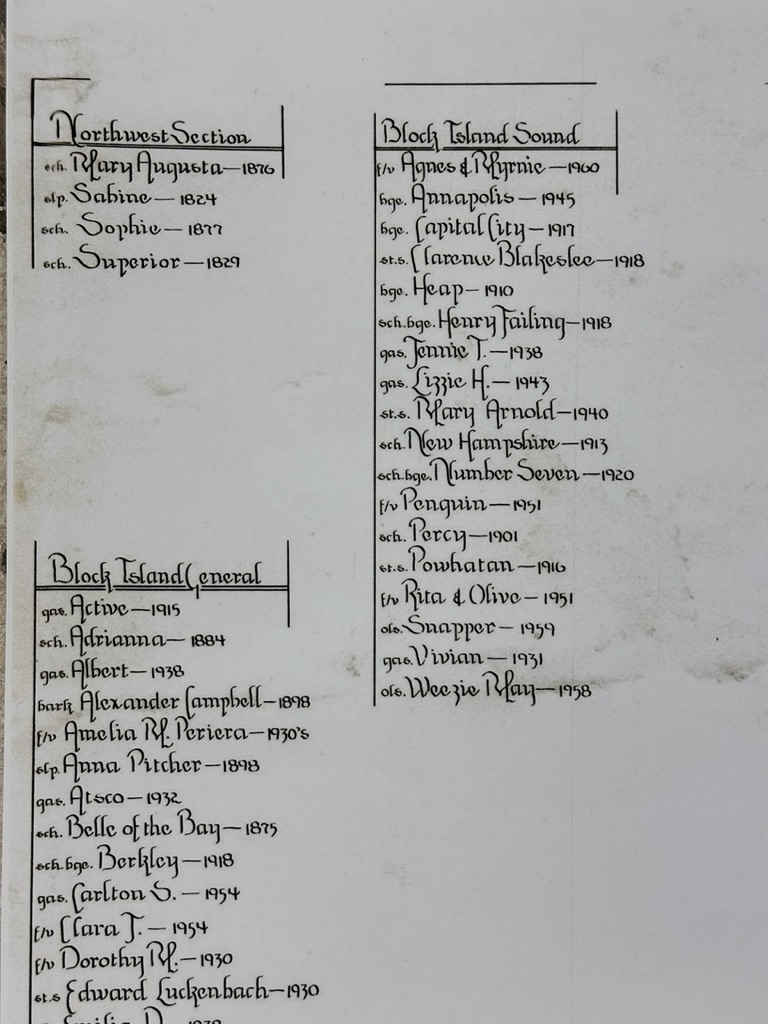 Northwest Section
sch. Mary Augusta—1876
slp. Sabine—1824
sch. Sophie—1877
sch. Superior—1829
Block Island General
gas. Active—1915
sch. Adrianna—1884
gas. Albert—1938
bark Alexander Campbell—1898
f/v Amelia M. Periera—1930's
slp. Anna Pitcher—1898
gas. Atsco—1932
sch. Belle of the Bay—1875
sch.bge. Berkley—1918
gas. Carlton S.—1954
f/v Clara T.—1954
f/v Dorothy M.—1930
st.s Edward Luckenbach—1930
Block Island Sound
f/v Agnes & Myrnie—1960
bge. Annapolis—1945
bge. Capital City—1917
st.s. Clarence Blakeslee—1918
bge. Heap—1910
sch.bge. Henry Failing—1918
gas. Jennie T.—1938
gas. Lizzie H.—1943
st.s. Mary Arnold—1940
sch. New Hampshire—1913
sch.bge. Number Seven—1920
f/v Penguin—1951
sch. Percy—1901
st.s. Powhatan—1916
f/v Rita & Olive—1951
ols. Snapper—1959
gas. Vivian—1931
ols. Weezie May—1958